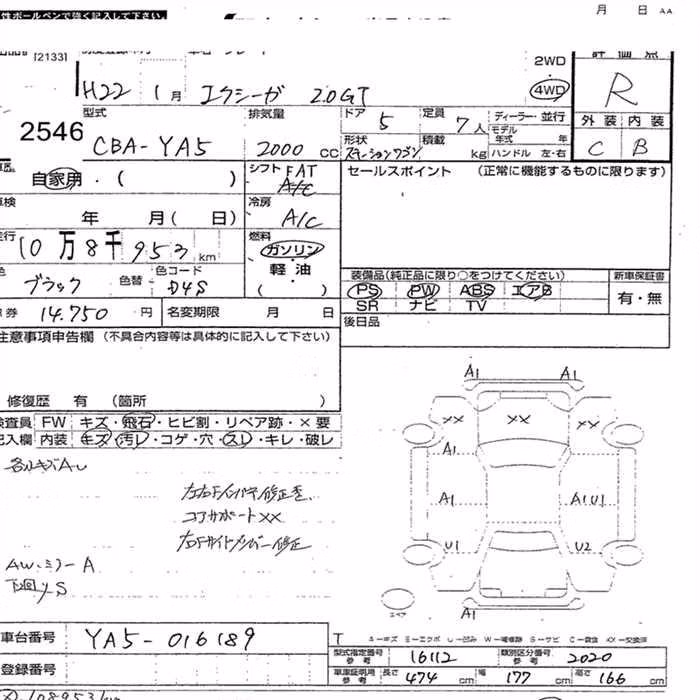 性ボールペンで強く記入して下さい。
月 日 AA
[2133]
2WD
評価点
H22 1月 エクシーガ 2.0GT
4WD
R
型式 排気量 ドア 5 定員 7人 ディーラー・並行
外装 内装
2546
CBA-YA5 2000cc
モデル年式 年
形状 ステーションワゴン 積載 kg ハンドル 左・右
C B
自家用・( )
シフト FAT
A/C
セールスポイント (正常に機能するものに限ります)
年 月( 日)
冷房 A/C
10万8千953km
燃料 ガソリン
軽油
( )
色替 色コード
ブラック D4S
装備品(純正品に限り○をつけてください) 新車保証書
PS PW ABS エアB
SR ナビ TV
有・無
14.750円 名変期限 月 日
後日品
注意事項申告欄 (不具合内容等は具体的に記入して下さい)
修復歴 有 (箇所 )
検査員 FW キズ・飛石・ヒビ割・リペア跡・×要
記入欄 内装 キズ・汚レ・コゲ・穴・スレ・キレ・破レ
A1 A1
XX XX XX
A1
A1 A1 U1
U1 U2
A1
左右Fインパネ修正xx
コアサポートXX
左右Fサイドメンバー修正
AW・ミラーA
下廻りS
スペア
車台番号 YA5-016189
A―キズ E―エクボ U―凹み W―補修跡 S―サビ C―腐食 XX―交換済
型式指定番号 参考 16112 類別区分番号 参考 2020
登録番号
車庫証明用 参考 長さ 474cm 幅 177cm 高さ 166cm
108953km